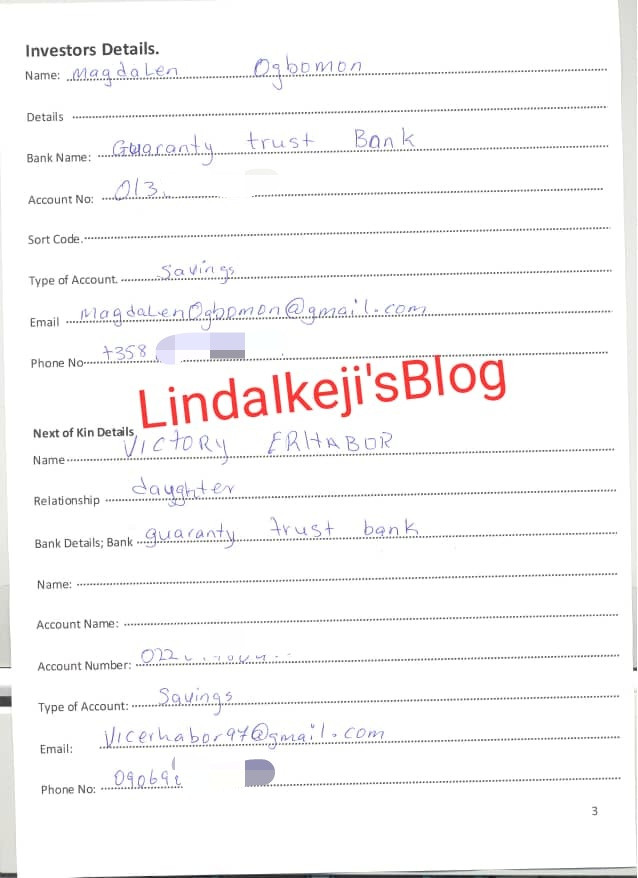 Investors Details.
Name: MagdaLen Ogbomon
Details
Bank Name: Guaranty trust Bank
Account No: 013
Sort Code.
Type of Account. Savings
Email MagdaLenOgbomon@gmail.com
Phone No +358
LindaIkeji'sBlog
Next of Kin Details
Name VICTORY ERHABOR
Relationship daughter
Bank Details; Bank guaranty trust bank
Name:
Account Name:
Account Number: 022
Type of Account: Savings
Email: Vicerhabor97@gmail.com
Phone No: 09069
3